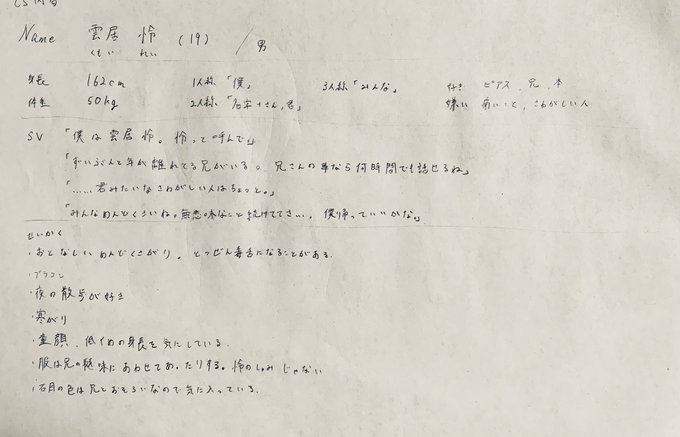 CS内容
Name 雲居 怜 (19) / 男
くもい れい
身長 162cm 1人称「僕」 3人称「みんな」 好き ピアス、兄、本
体重 50kg 2人称「名字+さん,君」 嫌い 痛いこと、さわがしい人
SV 「僕は雲居怜。怜って呼んで」
「ずいぶんと年が離れてる兄がいる。兄さんの事なら何時間でも話せるね」
「……君みたいなさわがしい人はちょっと。」
「みんなめんどくさいね。無意味なこと続けててさ…. 僕帰っていいかな。」
せいかく
・おとなしいめんどくさがり。とつぜん毒舌になることがある.
・ブラコン
・夜の散歩が好き
・寒がり
・童顔、低イめの身長を気にしている.
・服は兄の趣味にあわせてあったりする。怜のしゅみじゃない
・右目の色は兄とおそろいなので気に入っている.